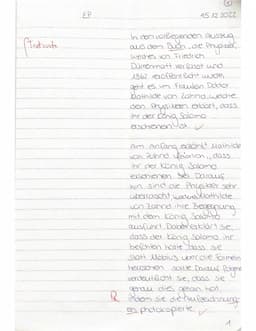 EP
15.12.2022
In dem vorliegenden Auszug
aus dem Buch „die Physiker",
welches von Friedrich
Dürrenmatt verfasst und
1962 veröffentlicht wurde,
geht es um Fräulein Doktor
Mathilde von Zahnd, welche
den Physikern erklärt, dass
ihr der König Salomo
erschienen ist.
Am Anfang erklärt Mathilde
von Zahnd, dass
ihr der König Salomo
erschienen sei. Darauf
hin sind die Physiker sehr
überrascht, Mathilde
von Zahnd ihre Begegnung
mit dem König Salomo
ausführt. Dabei erklärt sie,
dass der König Salomo ihr
befohlen hatte, dass sie
statt Möbius die Formeln
sollte. Darauf
verdeutlicht sie, dass sie
genau dies getan hat,
indem sie die Aufzeichnung
photokopierte.
R
1